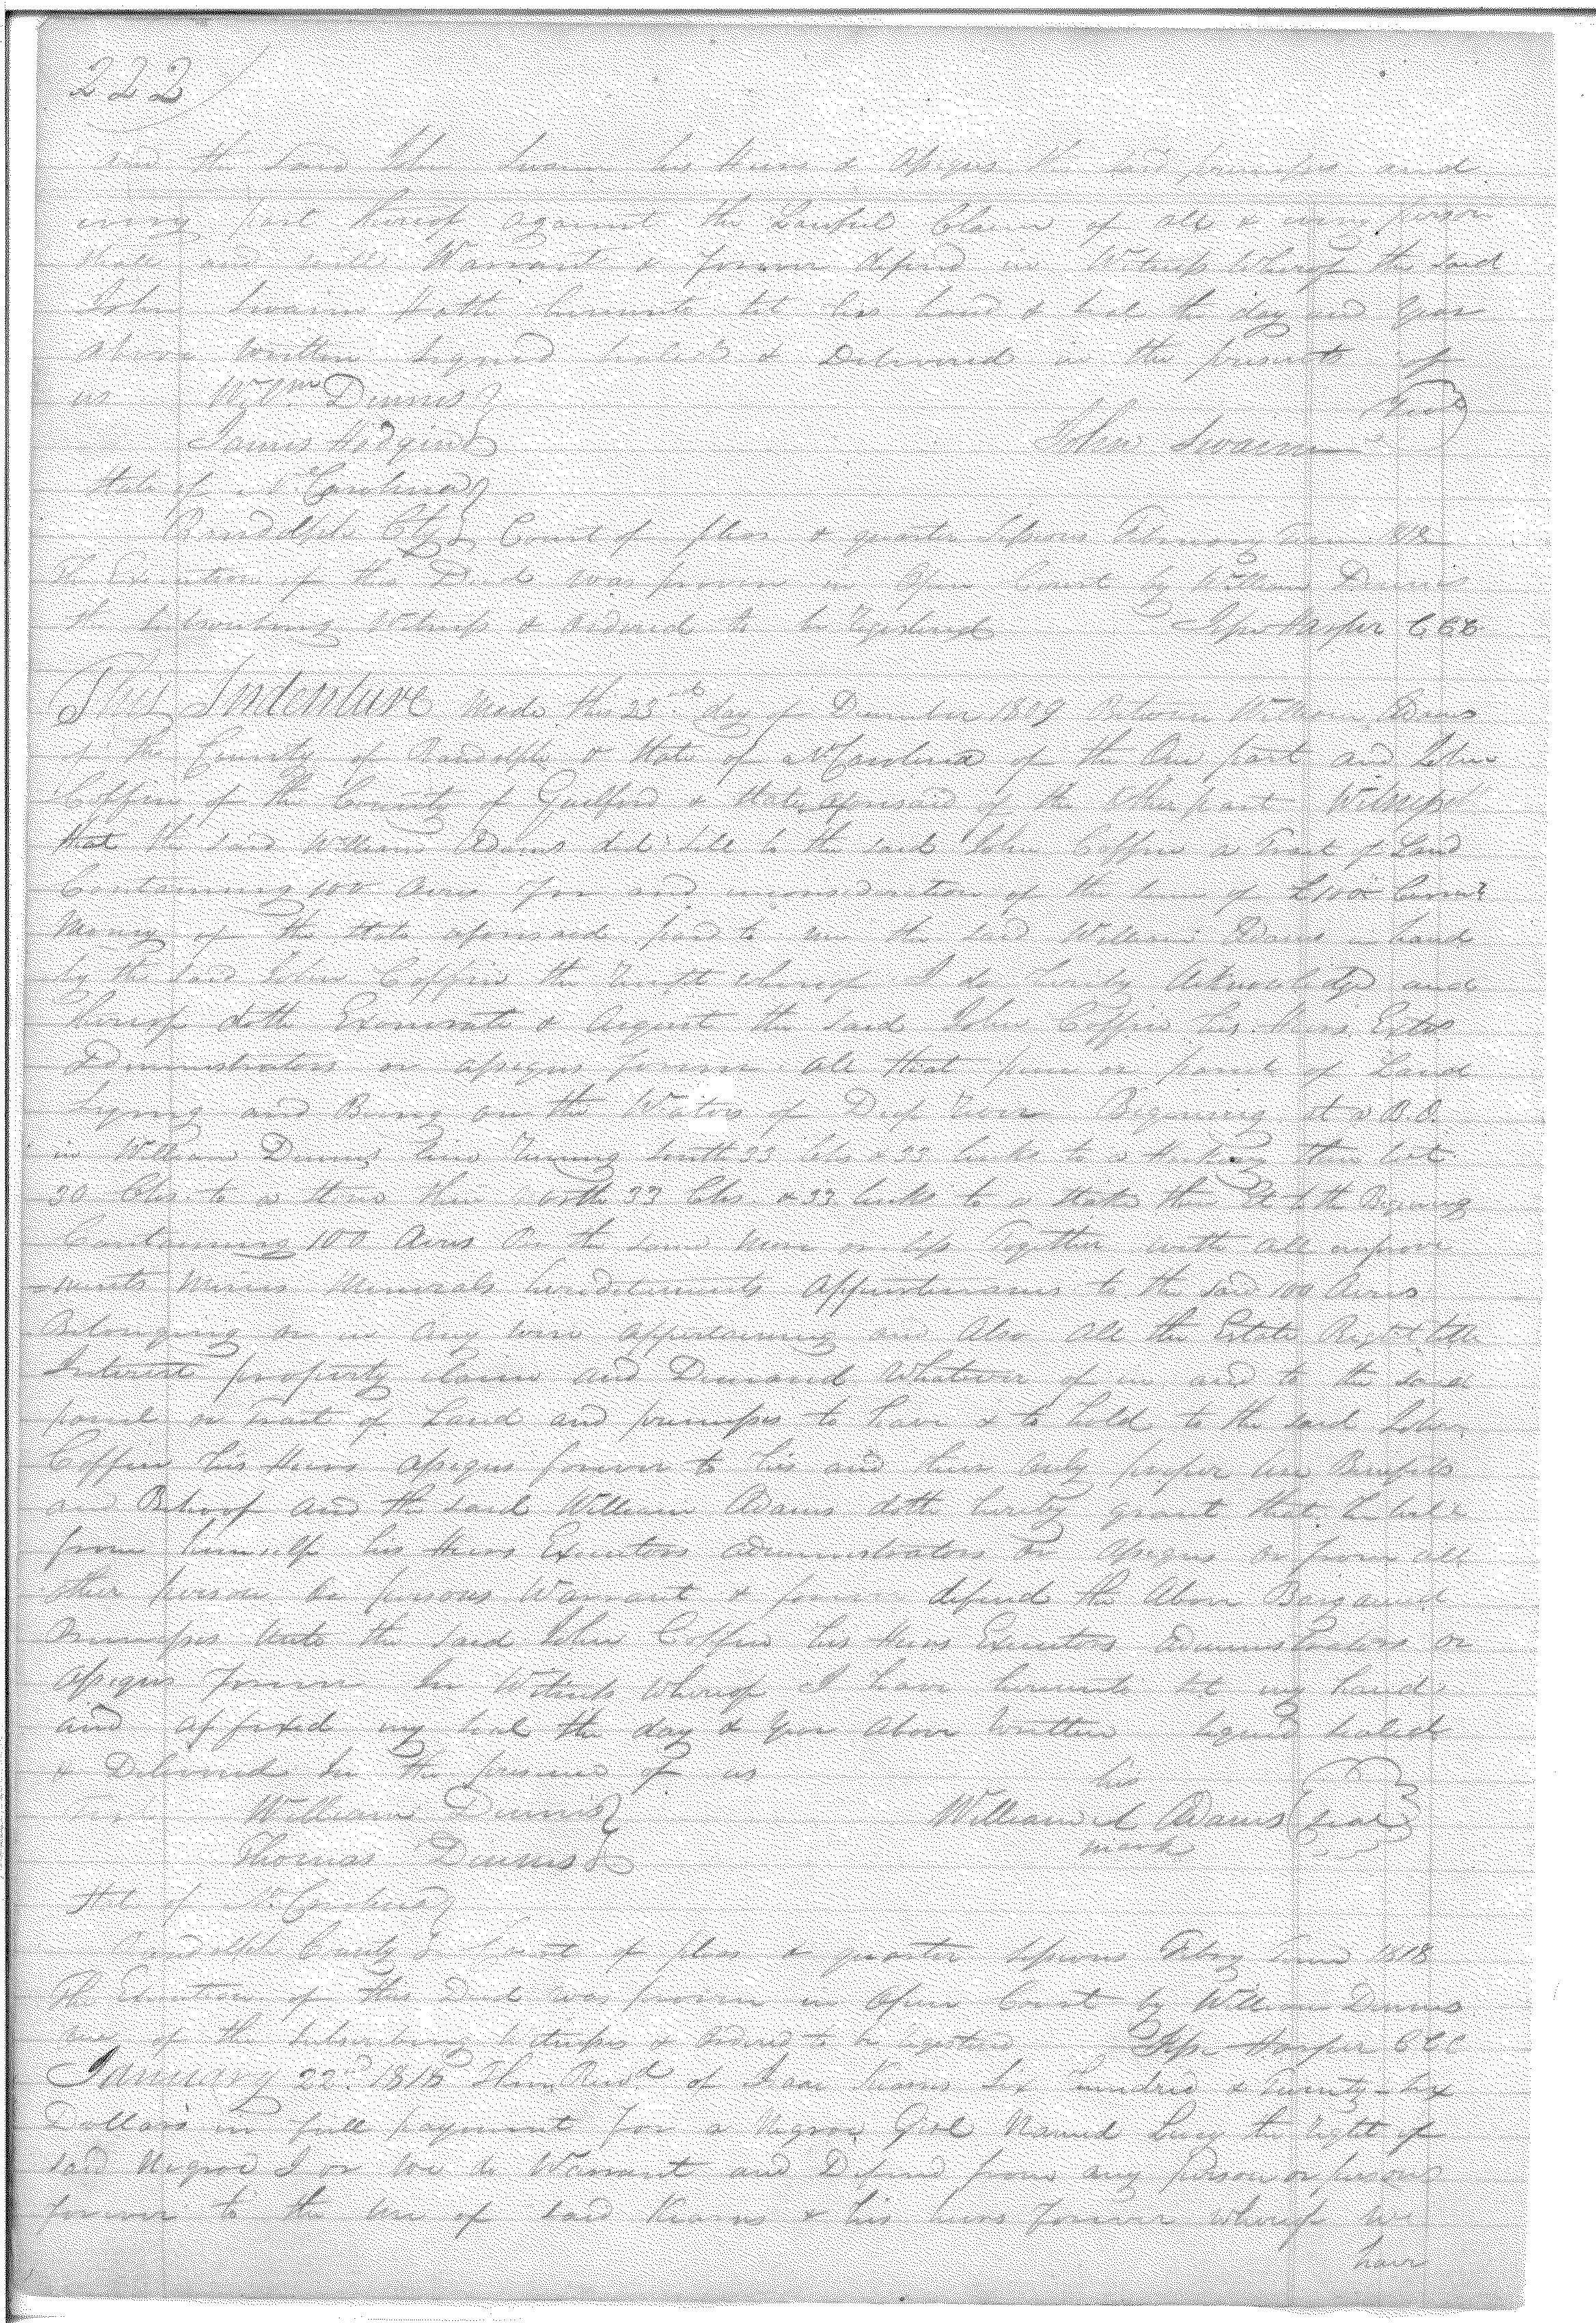 222
and the said John Swain his heirs & Assigns the said premises and
every part thereof against the Lawful Claim of all & every person
shall and will Warrant & forever defend in Witness Whereof the said
John Swaim hath hereunto set his hand & seal the day and Year
above Written Signed Sealed & Delivered in the presents of
us Wm Dennis
James Hodgin John Swaim Seal
State of N Carolina
Randolph Cty Court of pleas & quarter Sessions February Term 1818
The Execution of this Deed was proven in Open Court by William Dennis
the Subscribing Witness & ordered to be Registered Jesse Harper CCC
This Indenture Made this 23rd day of December 1809 Between William Adams
of the County of Randolph & State of N Carolina of the One part and John
Coffin of the County of Guilford & State aforesaid of the other part Witnesseth
that the said William Adams did sell to the said John Coffin a Tract of Land
Containing 100 Acres for and in consideration of the sum of £100 Curr
Money of the State aforesaid paid to me the said William Adams in hand
by the said John Coffin the receipt whereof I do hereby Acknowledge and
thereof doth Exonerate & Acquit the said John Coffin his Heirs Extrs
Administrators or assigns forever all that piece or parcel of Land
Lying and Being on the Waters of Deep River Begining at a B.O.
in William Dennis line Runing South 33 Chs & 33 links to a then West
30 Chs to a stone then North 33 Chs & 33 links to a stake then E to the Begining
Containing 100 Acres Be the same more or less Together with all improve
-ments Mines Minerals hereditaments Appurtenances to the said 100 Acres
Belonging or in any wise appertaining and Also all the Estate Right title
Interest property claim and Demand Whatever of in and to the said
parcel or Tract of Land and premises to have & to hold to the said John
Coffin his Heirs assigns forever to his and their only proper use Benefit
and Behoof and the said William Adams doth hereby grant that he will
from himself his Heirs Executors administrators or assigns or from all
other person or persons Warrant & forever defend the Above Bargained
Premises unto the said John Coffin his Heirs Executors Administrators or
assigns forever In Witness Whereof I have hereunto set my hand
and affixed my seal the day & Year above Written Signed Sealed
& Delivered In the presence of us his
William Dennis William Adams seal
Thomas Dennis mark
State of N. Carolina
Randolph County Court of pleas & quarter Sessions Feby Term 1818
The Execution of this Deed was proven in Open Court by William Dennis
one of the Subscribing Witnesses & Ordered to be registered Jesse Harper CCC
January 22d 1818 Then Recd of Isaac Kearns Six hundred & Twenty-Six
Dollars in full payment for a Negroe Girl Named Lucy the right of
said Negroe I or We do Warrant and Defend from any Person or persons
forever to the use of said Kearns & his heirs forever whereof we
have